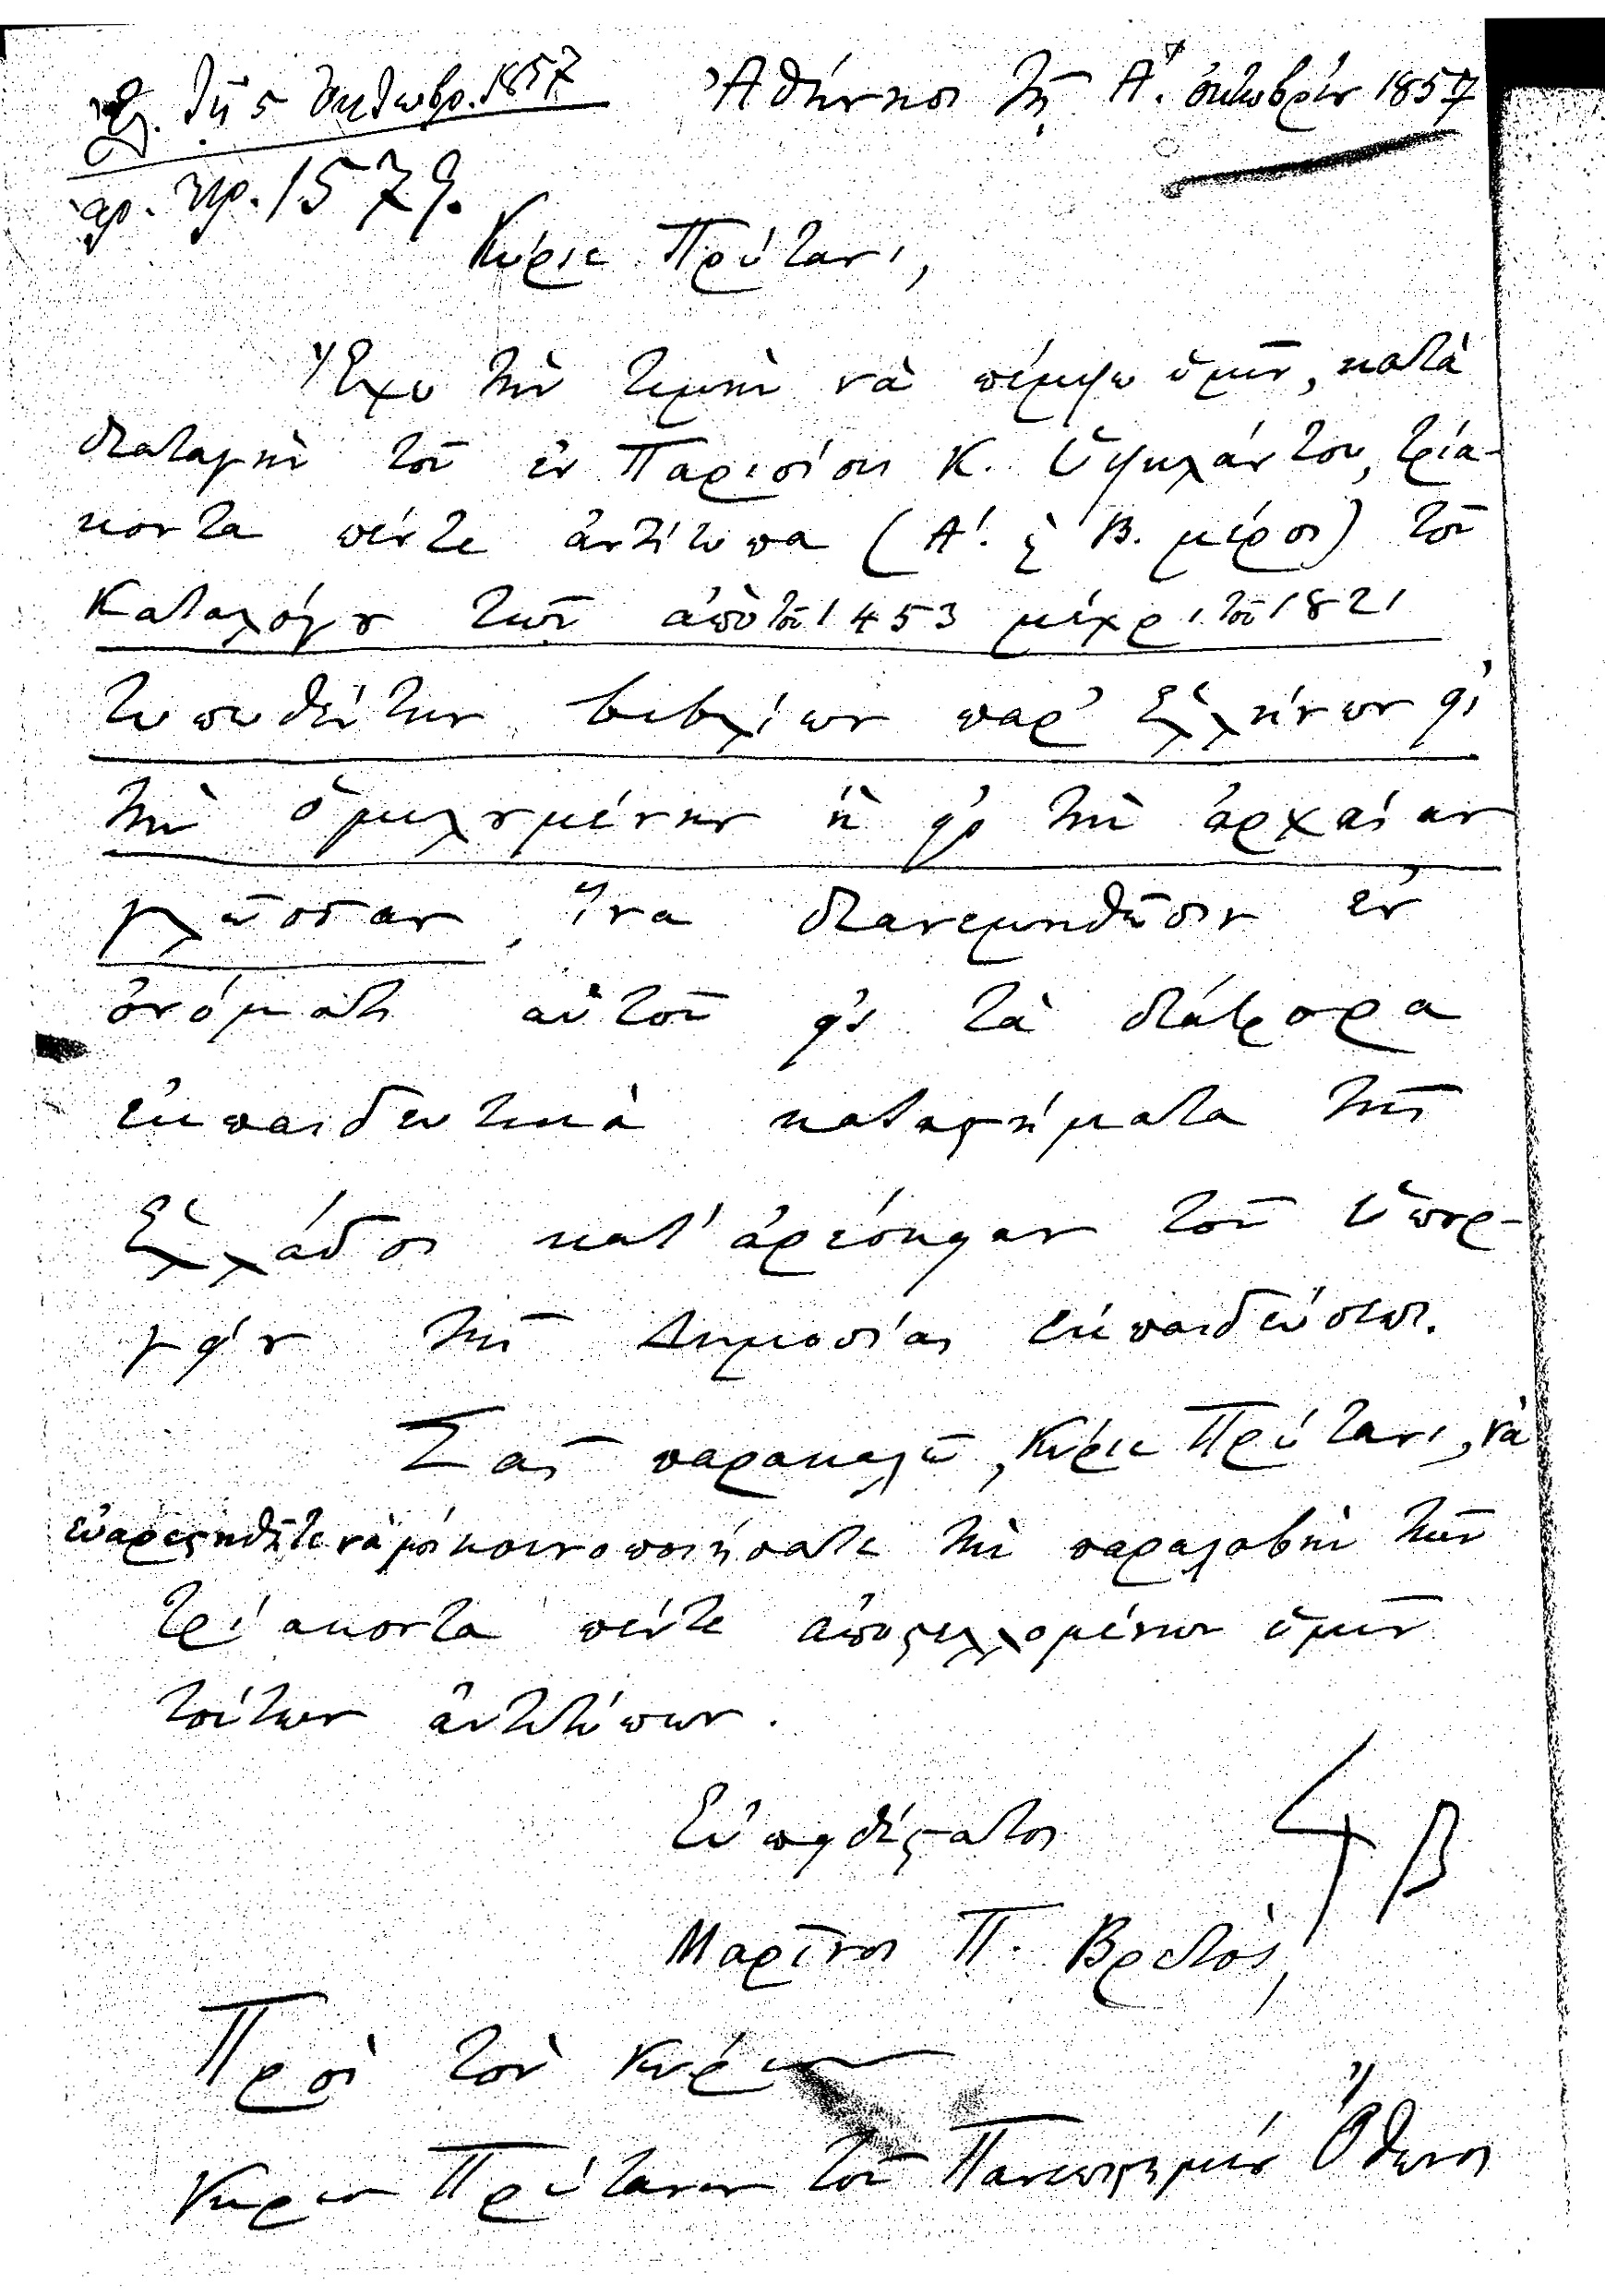 τῇ 5 Ὀκτωβρ. 1857
ἀρ. πρ. 1579.
Ἀθήνησι τῇ Α'. ὀκτωβρίου 1857
Κύριε Πρύτανι,
Ἔχω τὴν τιμὴν νὰ πέμψω ὑμῖν, κατὰ
διαταγὴν τοῦ ἐν Παρισίοις Κ. Ὑψηλάντου, τριά-
κοντα πέντε ἀντίτυπα (Α'. ϗ Β. μέρος) τοῦ
Καταλόγου τῶν ἀπὸ τοῦ 1453 μέχρι τοῦ 1821
τυπωθέντων βιβλίων παρ' Ἑλλήνων εἰς
τὴν ὁμιλουμένην ἢ εἰς τὴν ἀρχαίαν
γλῶσσαν, ἵνα διανεμηθῶσιν ἐν
ὀνόματι αὐτοῦ εἰς τὰ διάφορα
ἐκπαιδευτικὰ καταστήματα τῆς
Ἑλλάδος κατ' ἀρέσκειαν τοῦ Ὑπουρ-
γείου τῆς Δημοσίας ἐκπαιδεύσεως.
Σᾶς παρακαλῶ, Κύριε Πρύτανι, νὰ
εὐαρεστηθῆτε νὰ μοὶ κοινοποιήσατε τὴν παραλαβὴν τῶν
τριάκοντα πέντε ἀποστελλομένων ὑμῖν
τούτων ἀντιτύπων.
Εὐπειθέστατος
Μαρῖνος Π. Βρετὸς
Πρὸς τὸν Κύριον
Κύριον Πρύτανιν τοῦ Πανεπιστημίου Ὄθωνος